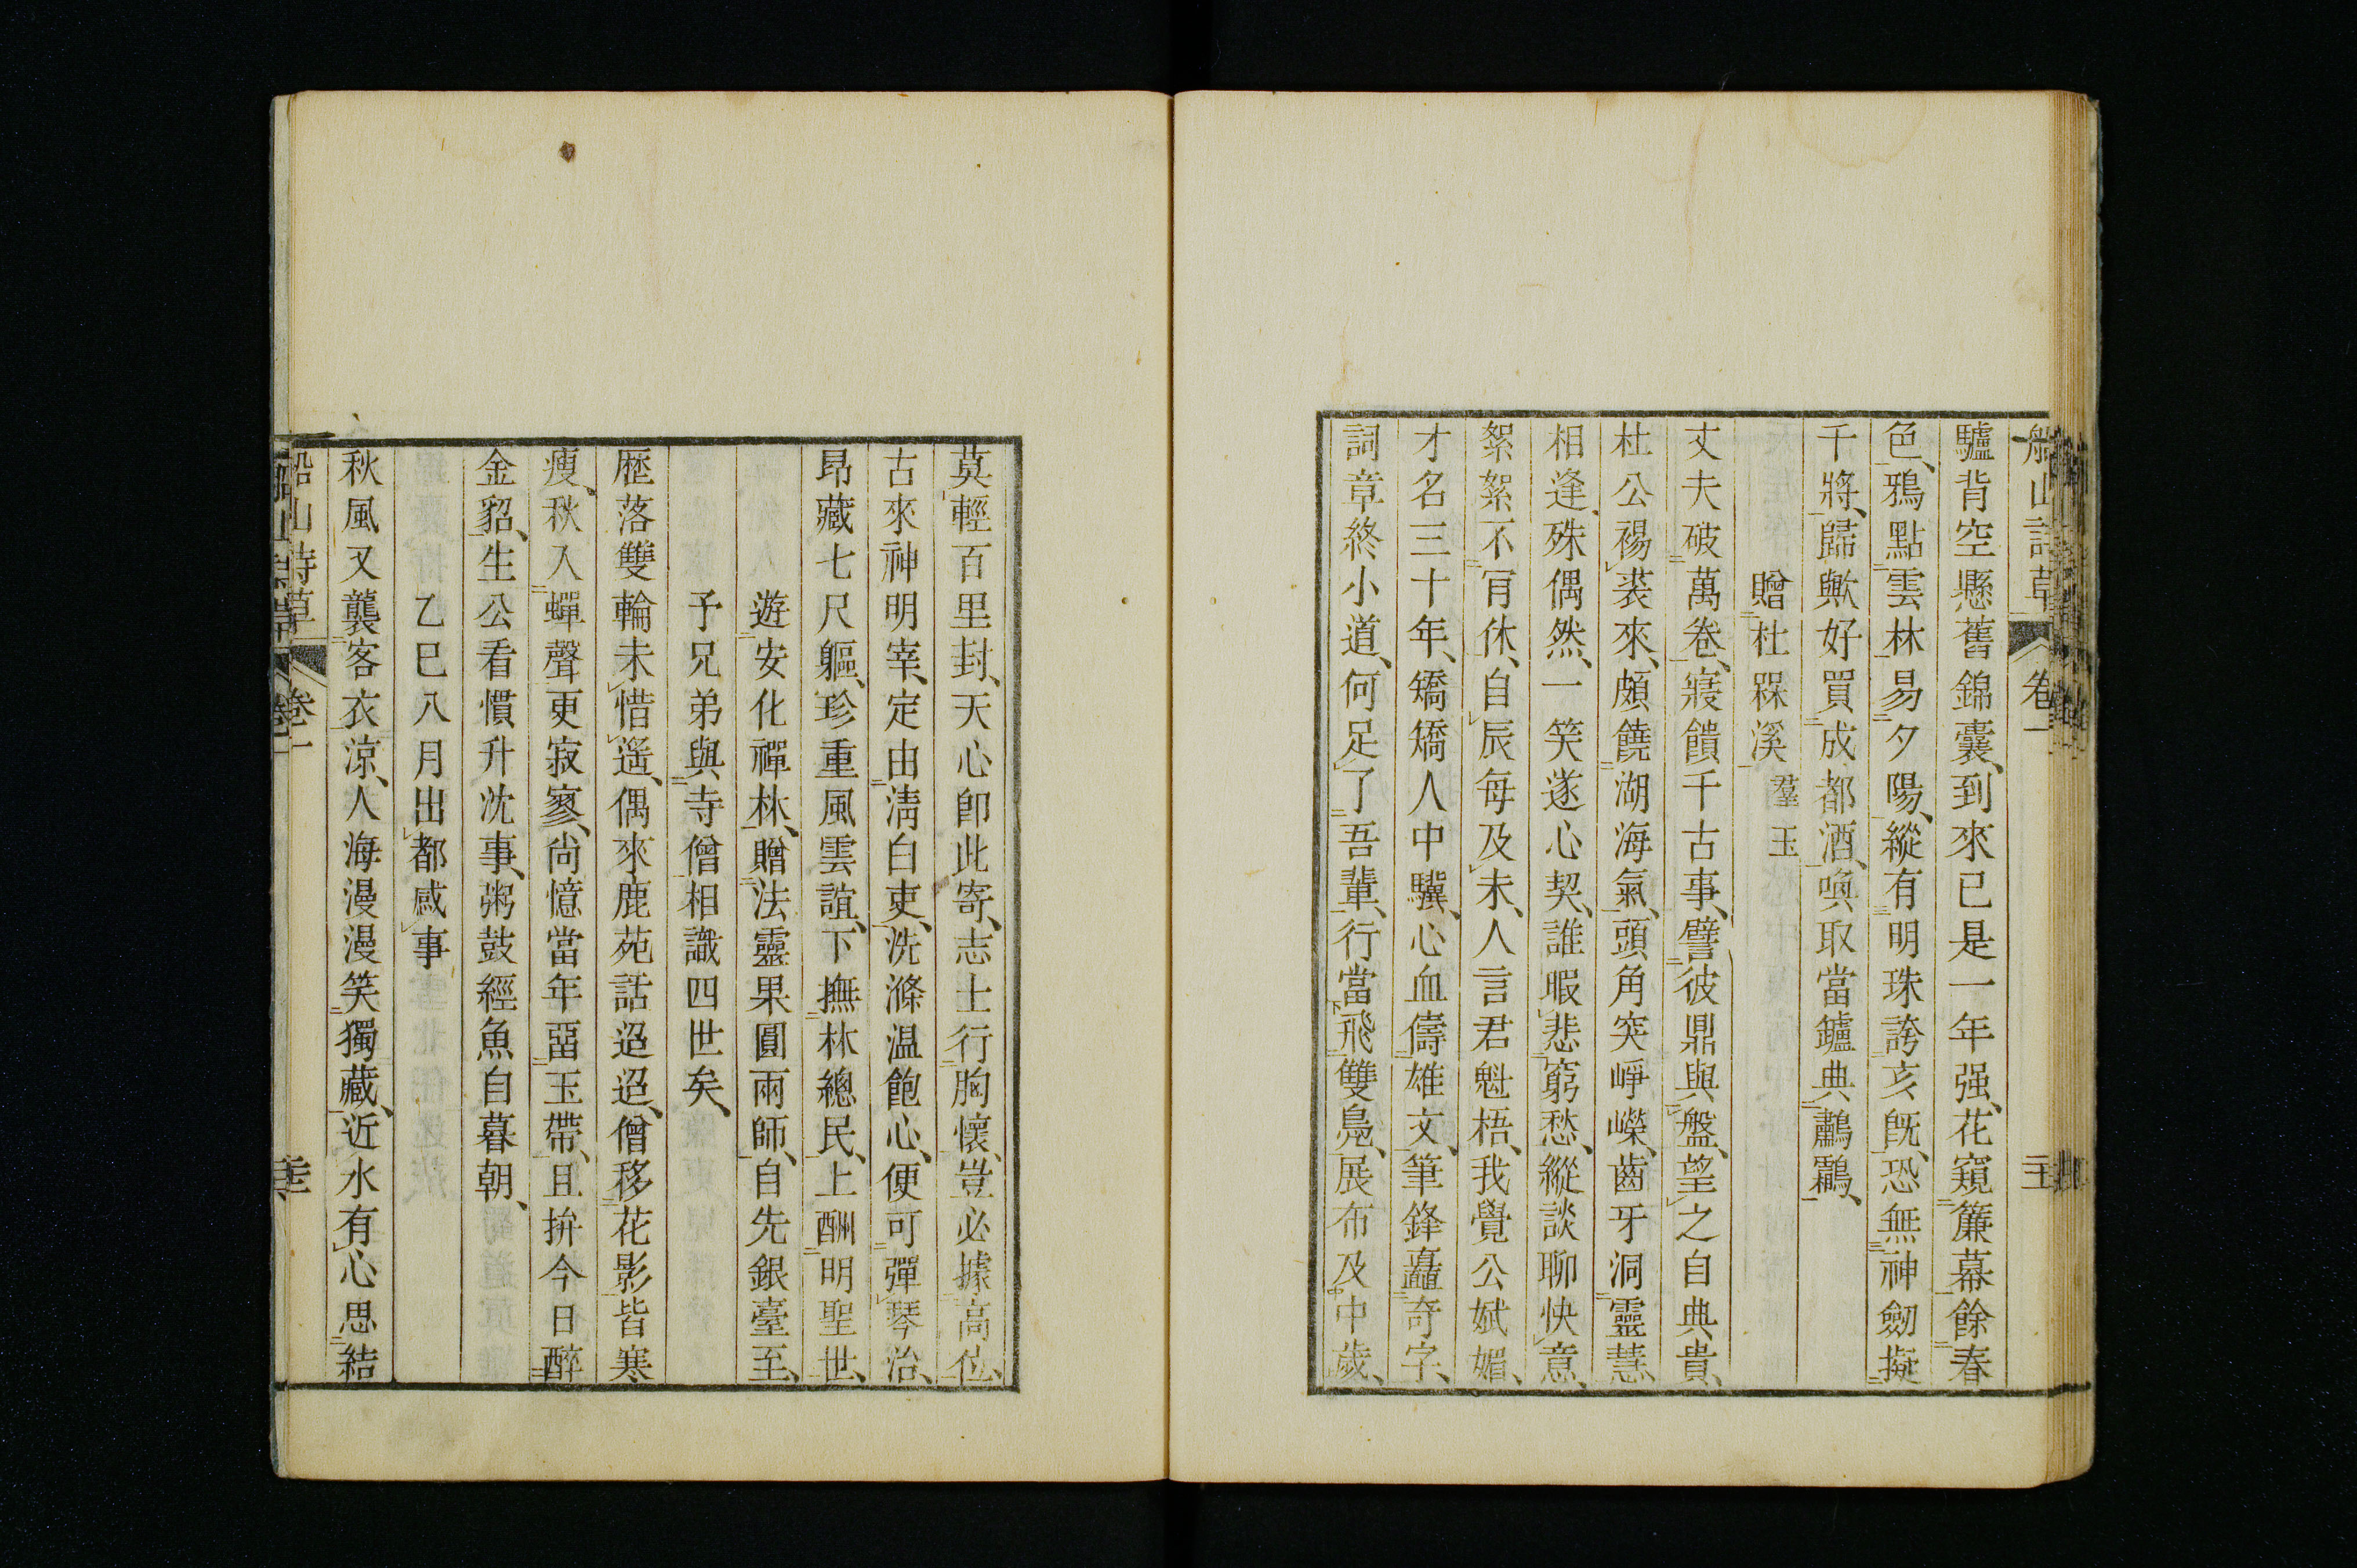 船山詩草 卷一 二十
驢背空懸舊錦囊、到來已是一年强、花窺簾幕餘春
色、鴉點雲林易夕陽、縱有明珠誇亥旣、恐無神劒擬
千將、歸歟好買成都酒、喚取當鑪典鷫鸘、
贈杜槑溪羣玉
丈夫破萬卷、寢饋千古事、譬彼鼎與盤、望之自典貴、
杜公裼裘來、頗饒湖海氣、頭角突崢嶸、齒牙洞靈慧、
相逢殊偶然、一笑遂心契、誰暇悲窮愁、縱談聊快意、
絮絮不肎休、自辰每及未、人言君魁梧、我覺公斌媚、
才名三十年、矯矯人中驥、心血儔雄文、筆鋒矗奇字、
詞章終小道、何足了吾輩、行當飛雙鳧、展布及中歲、
莫輕百里封、天心卽此寄、志士行胸懷、豈必據高位、
古來神明宰、定由淸白吏、洗滌温飽心、便可彈琴治、
昂藏七尺軀、珍重風雲誼、下撫林總民、上酬明聖世、
遊安化禪林、贈法靈果圓兩師、自先銀臺至、
予兄弟與寺僧相識四世矣、
歷落雙輪未惜遙、偶來鹿苑話迢迢、僧移花影皆寒
瘦、秋入蟬聲更寂寥、尙憶當年畱玉帶、且拚今日醉
金貂、生公看慣升沈事、粥鼓經魚自暮朝、
乙巳八月出都感事
秋風又襲客衣涼、人海漫漫笑獨藏、近水有心思結
船山詩草 卷一